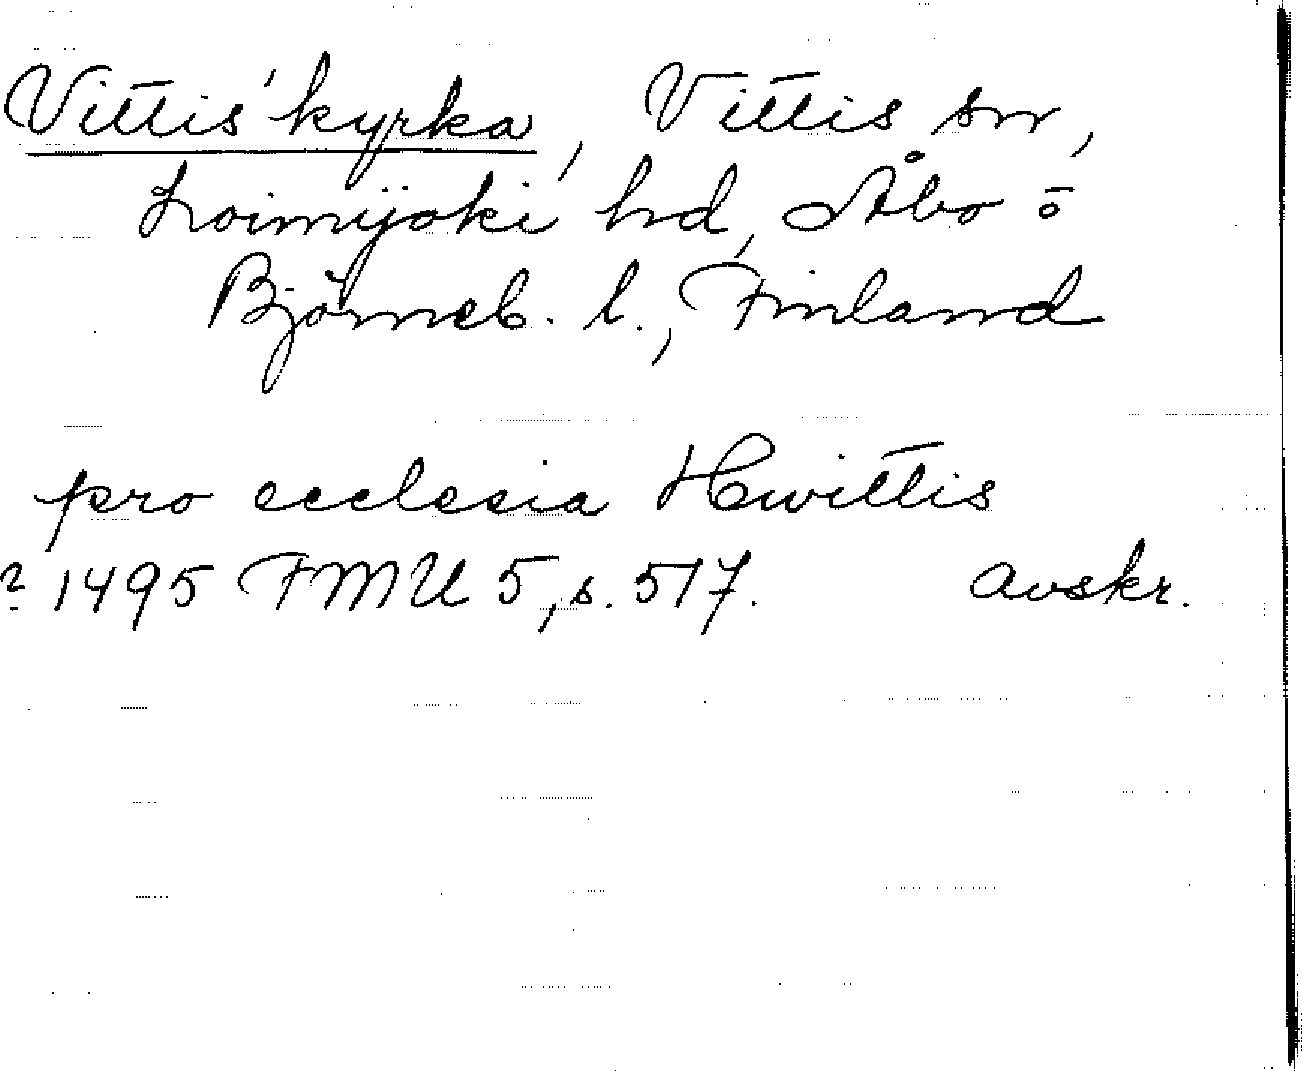 Vittis' kyrka, Vittis sn,
Loimijoki hd, Åbo o
Björneb. l., Finland
pro ecclesia Hwittis
? 1495 FMU 5, s. 517. avskr.